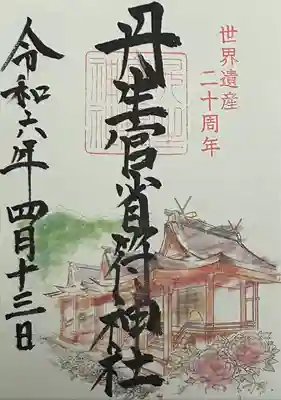 世界遺産
二十周年
丹生官省符神社
令和六年四月十三日